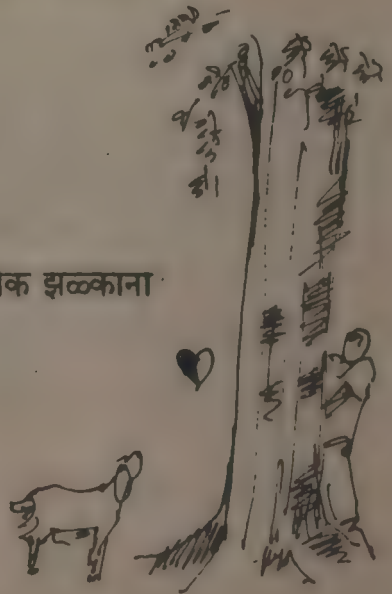 क झळ्काना